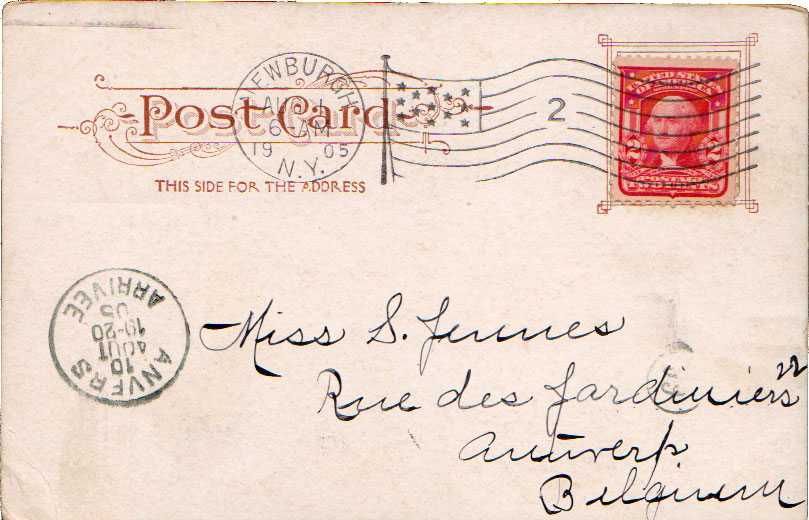 NEWBURGH
AUG 1
6-AM
1905
N.Y.
2
Post Card
THIS SIDE FOR THE ADDRESS
UNITED STATES
OF AMERICA
2 2
POSTAGE
TWO CENTS
ANVERS
10
AOUT
19-20
05
ARRIVEE
Miss S. Jennes
22
Rue des Jardiniers
Antwerp
Belgium